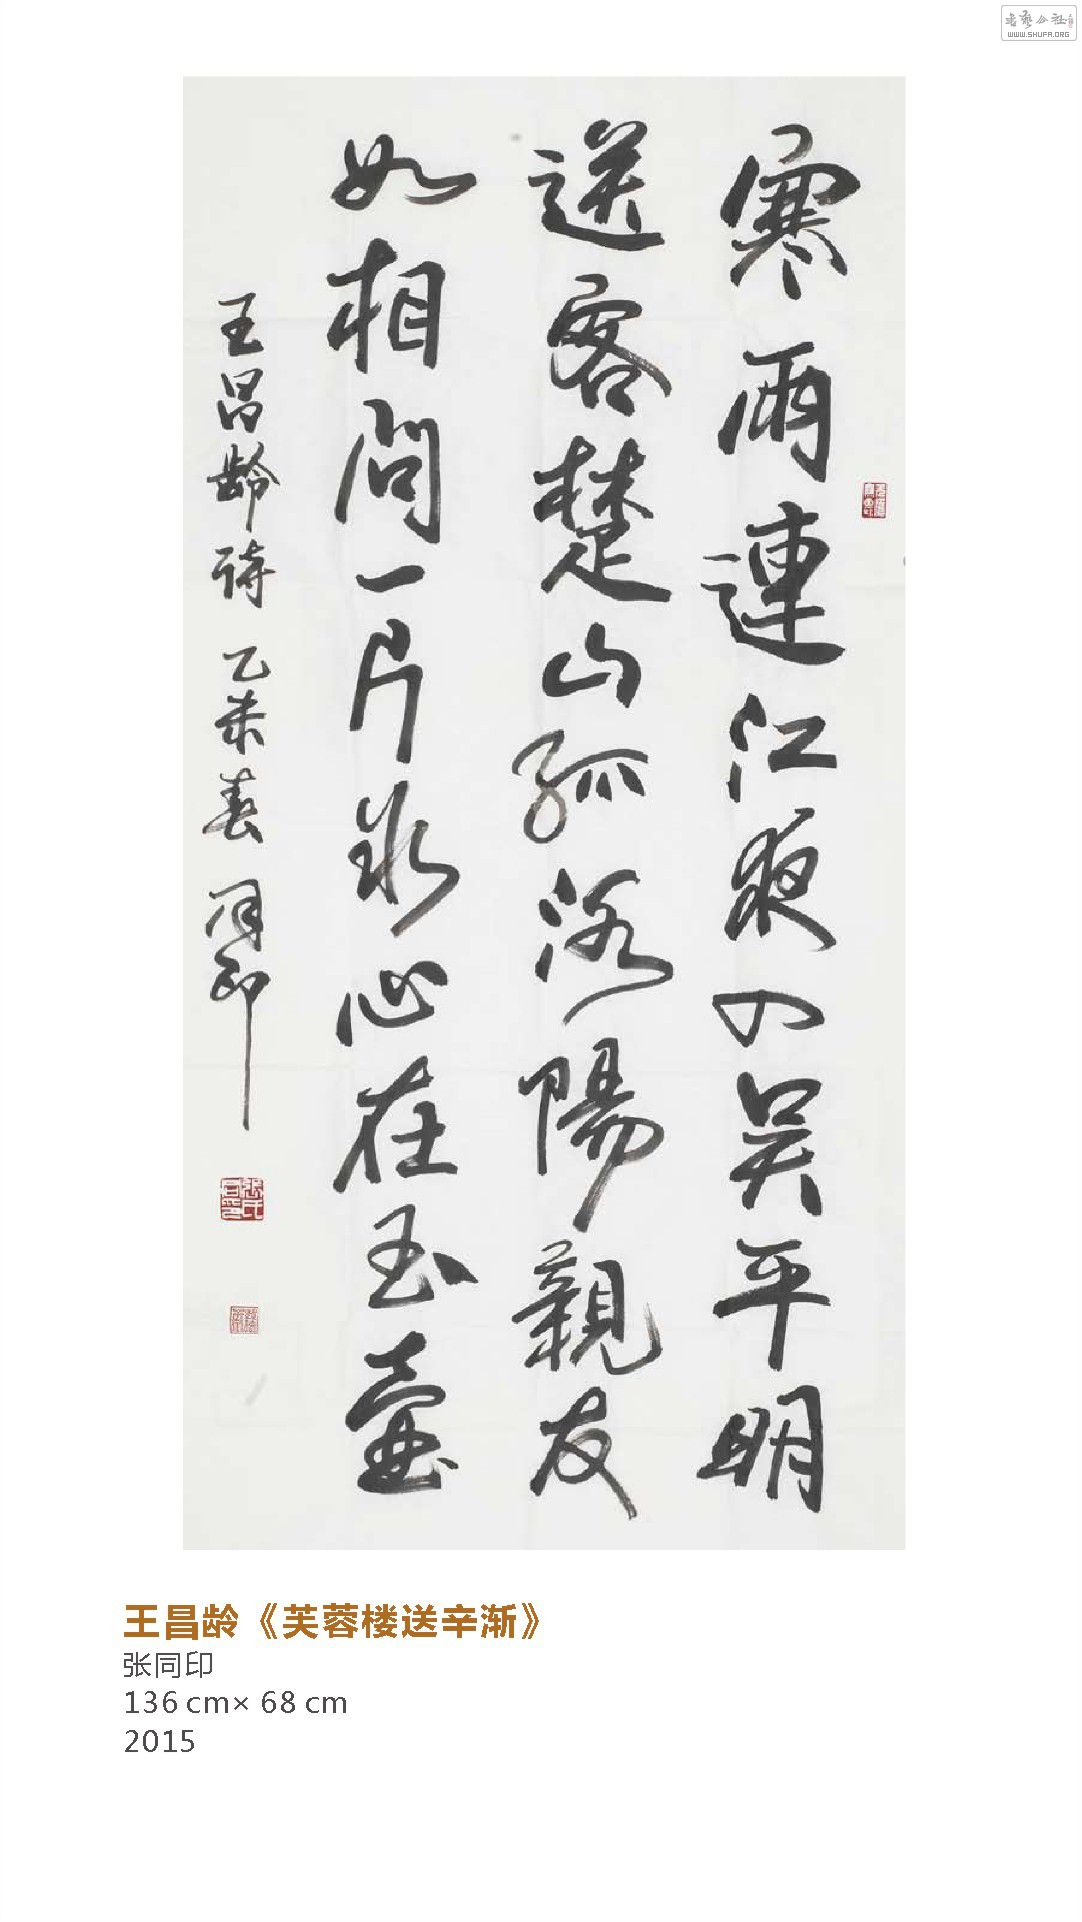 书艺公社
WWW.SHUFA.ORG
寒雨連江夜入吴平明
送客楚山孤洛陽親友
如相问一片冰心在玉壺
王昌龄诗 乙未春 同印
王昌龄《芙蓉楼送辛渐》
张同印
136 cm× 68 cm
2015